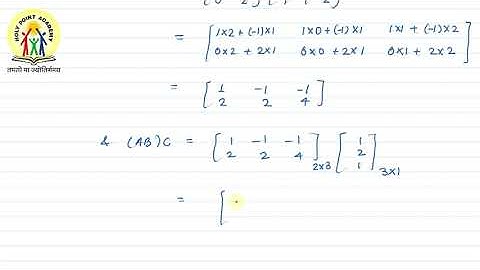 HOLY POINT ACADEMY
तमसो मा ज्योतिर्गमय
= [ 1×2 + (-1)×1   1×0 + (-1)×1   1×1 + (-1)×2
0×2 + 2×1   0×0 + 2×1   0×1 + 2×2 ]
= [ 1   -1   -1
2   2   4 ]
& (AB)C = [ 1   -1   -1   [ 1
2   2   4 ]   2
2×3   1 ] 3×1
= [